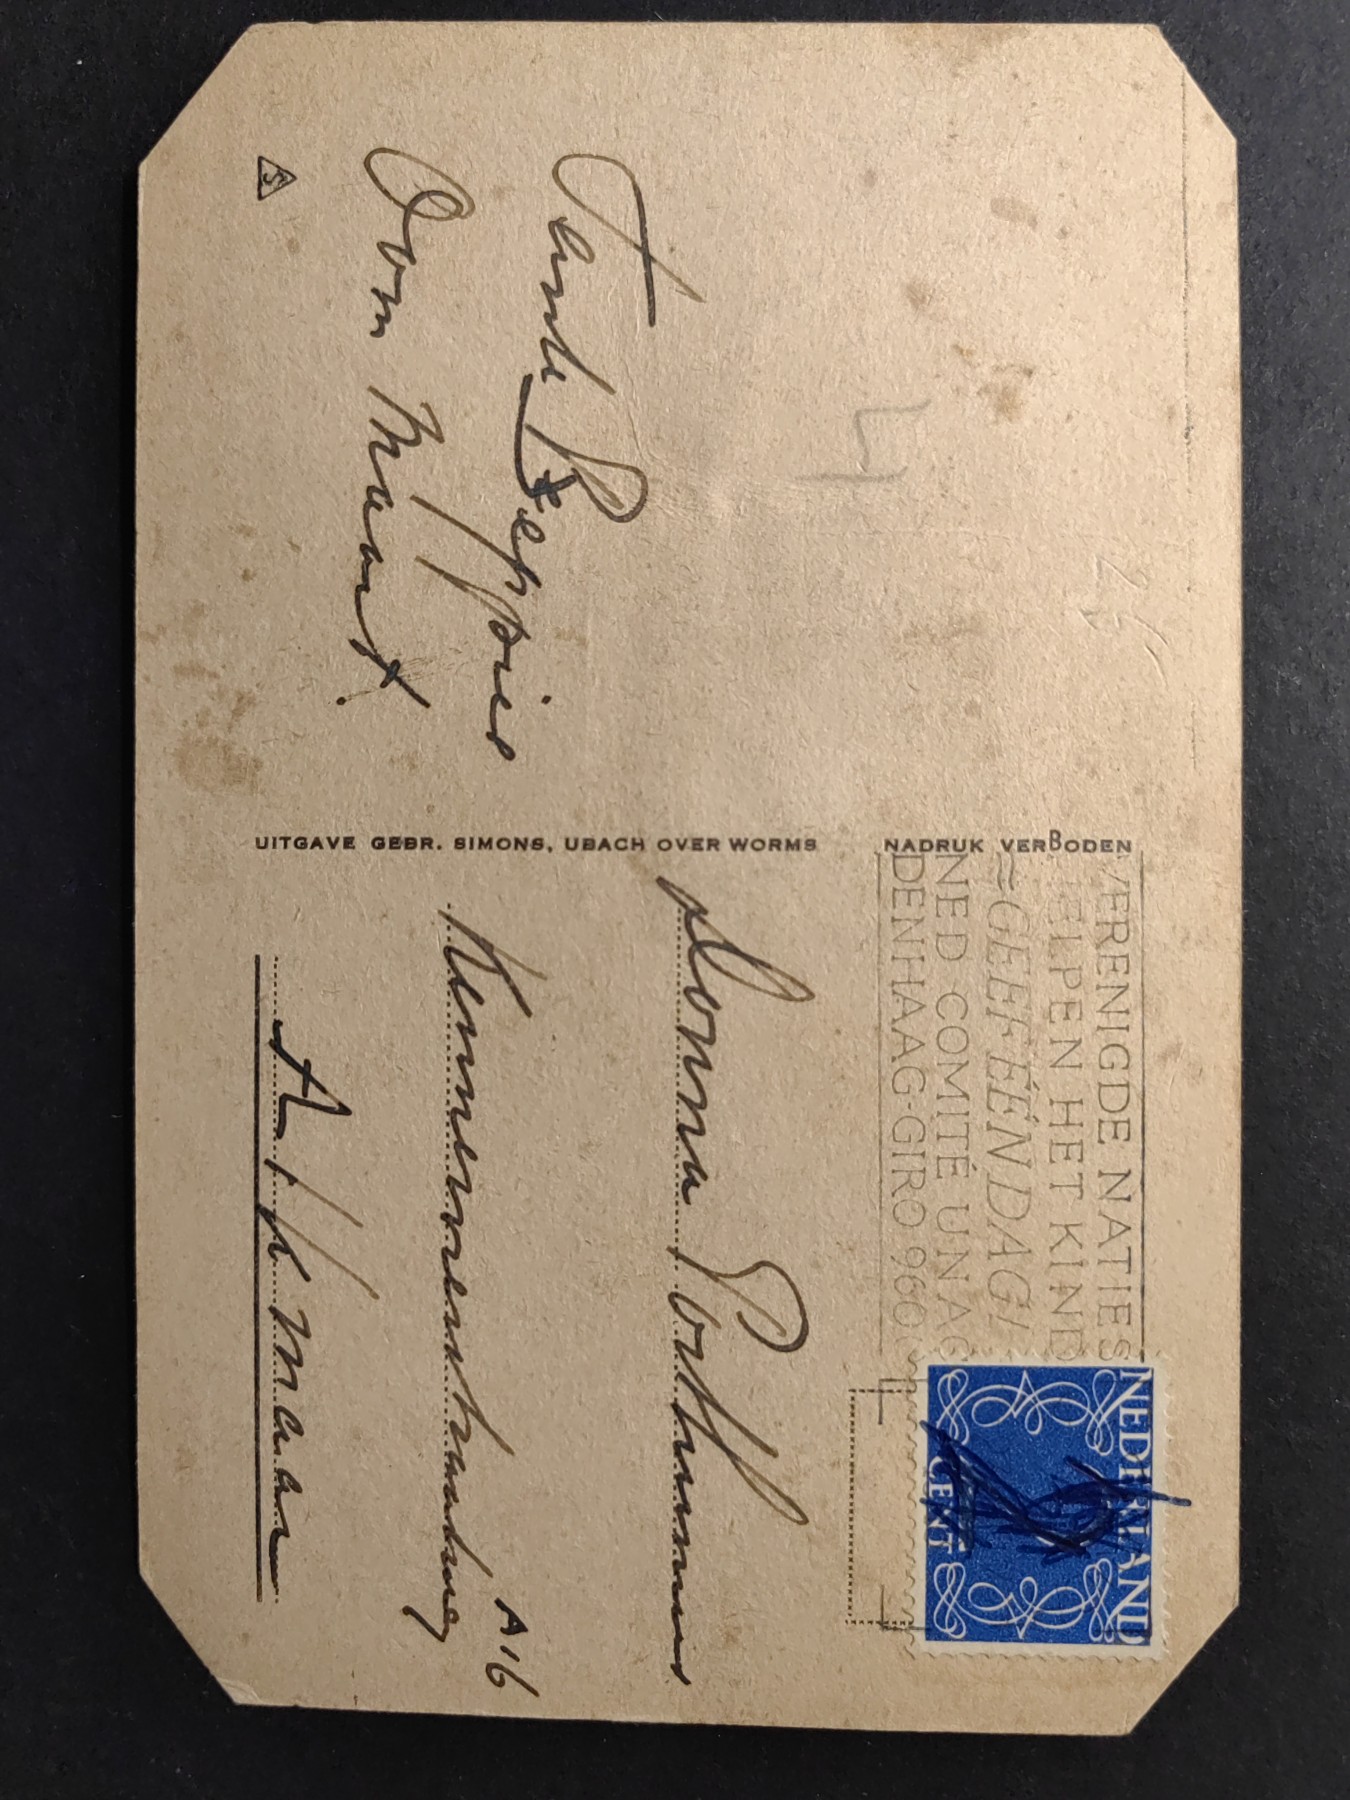 Tante Beppie
Oom Maart.
UITGAVE GEBR. SIMONS, UBACH OVER WORMS
NADRUK VERBODEN
VERENIGDE NATIES
HELPEN HET KIND
GEEF ÉÉN DAG!
NED COMITÉ UNAC
DEN HAAG-GIRO 960
NEDERLAND
CENT
Donna
Kennemerstraatweg
A16
Alkmaar
4
25